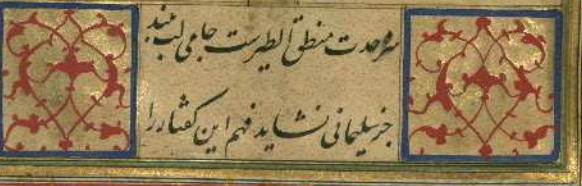 سر وحدت منطق الطیرست جامی لب ببند
جز سلیمانی نشاید فهم این گفتار را